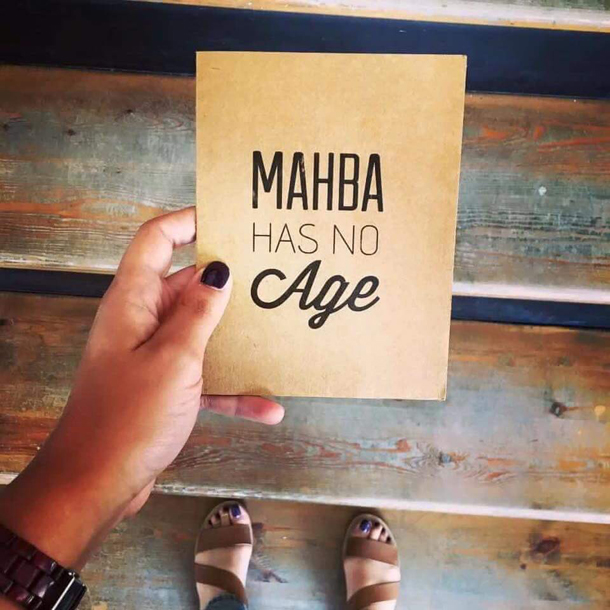 MAHBA
HAS NO
Age